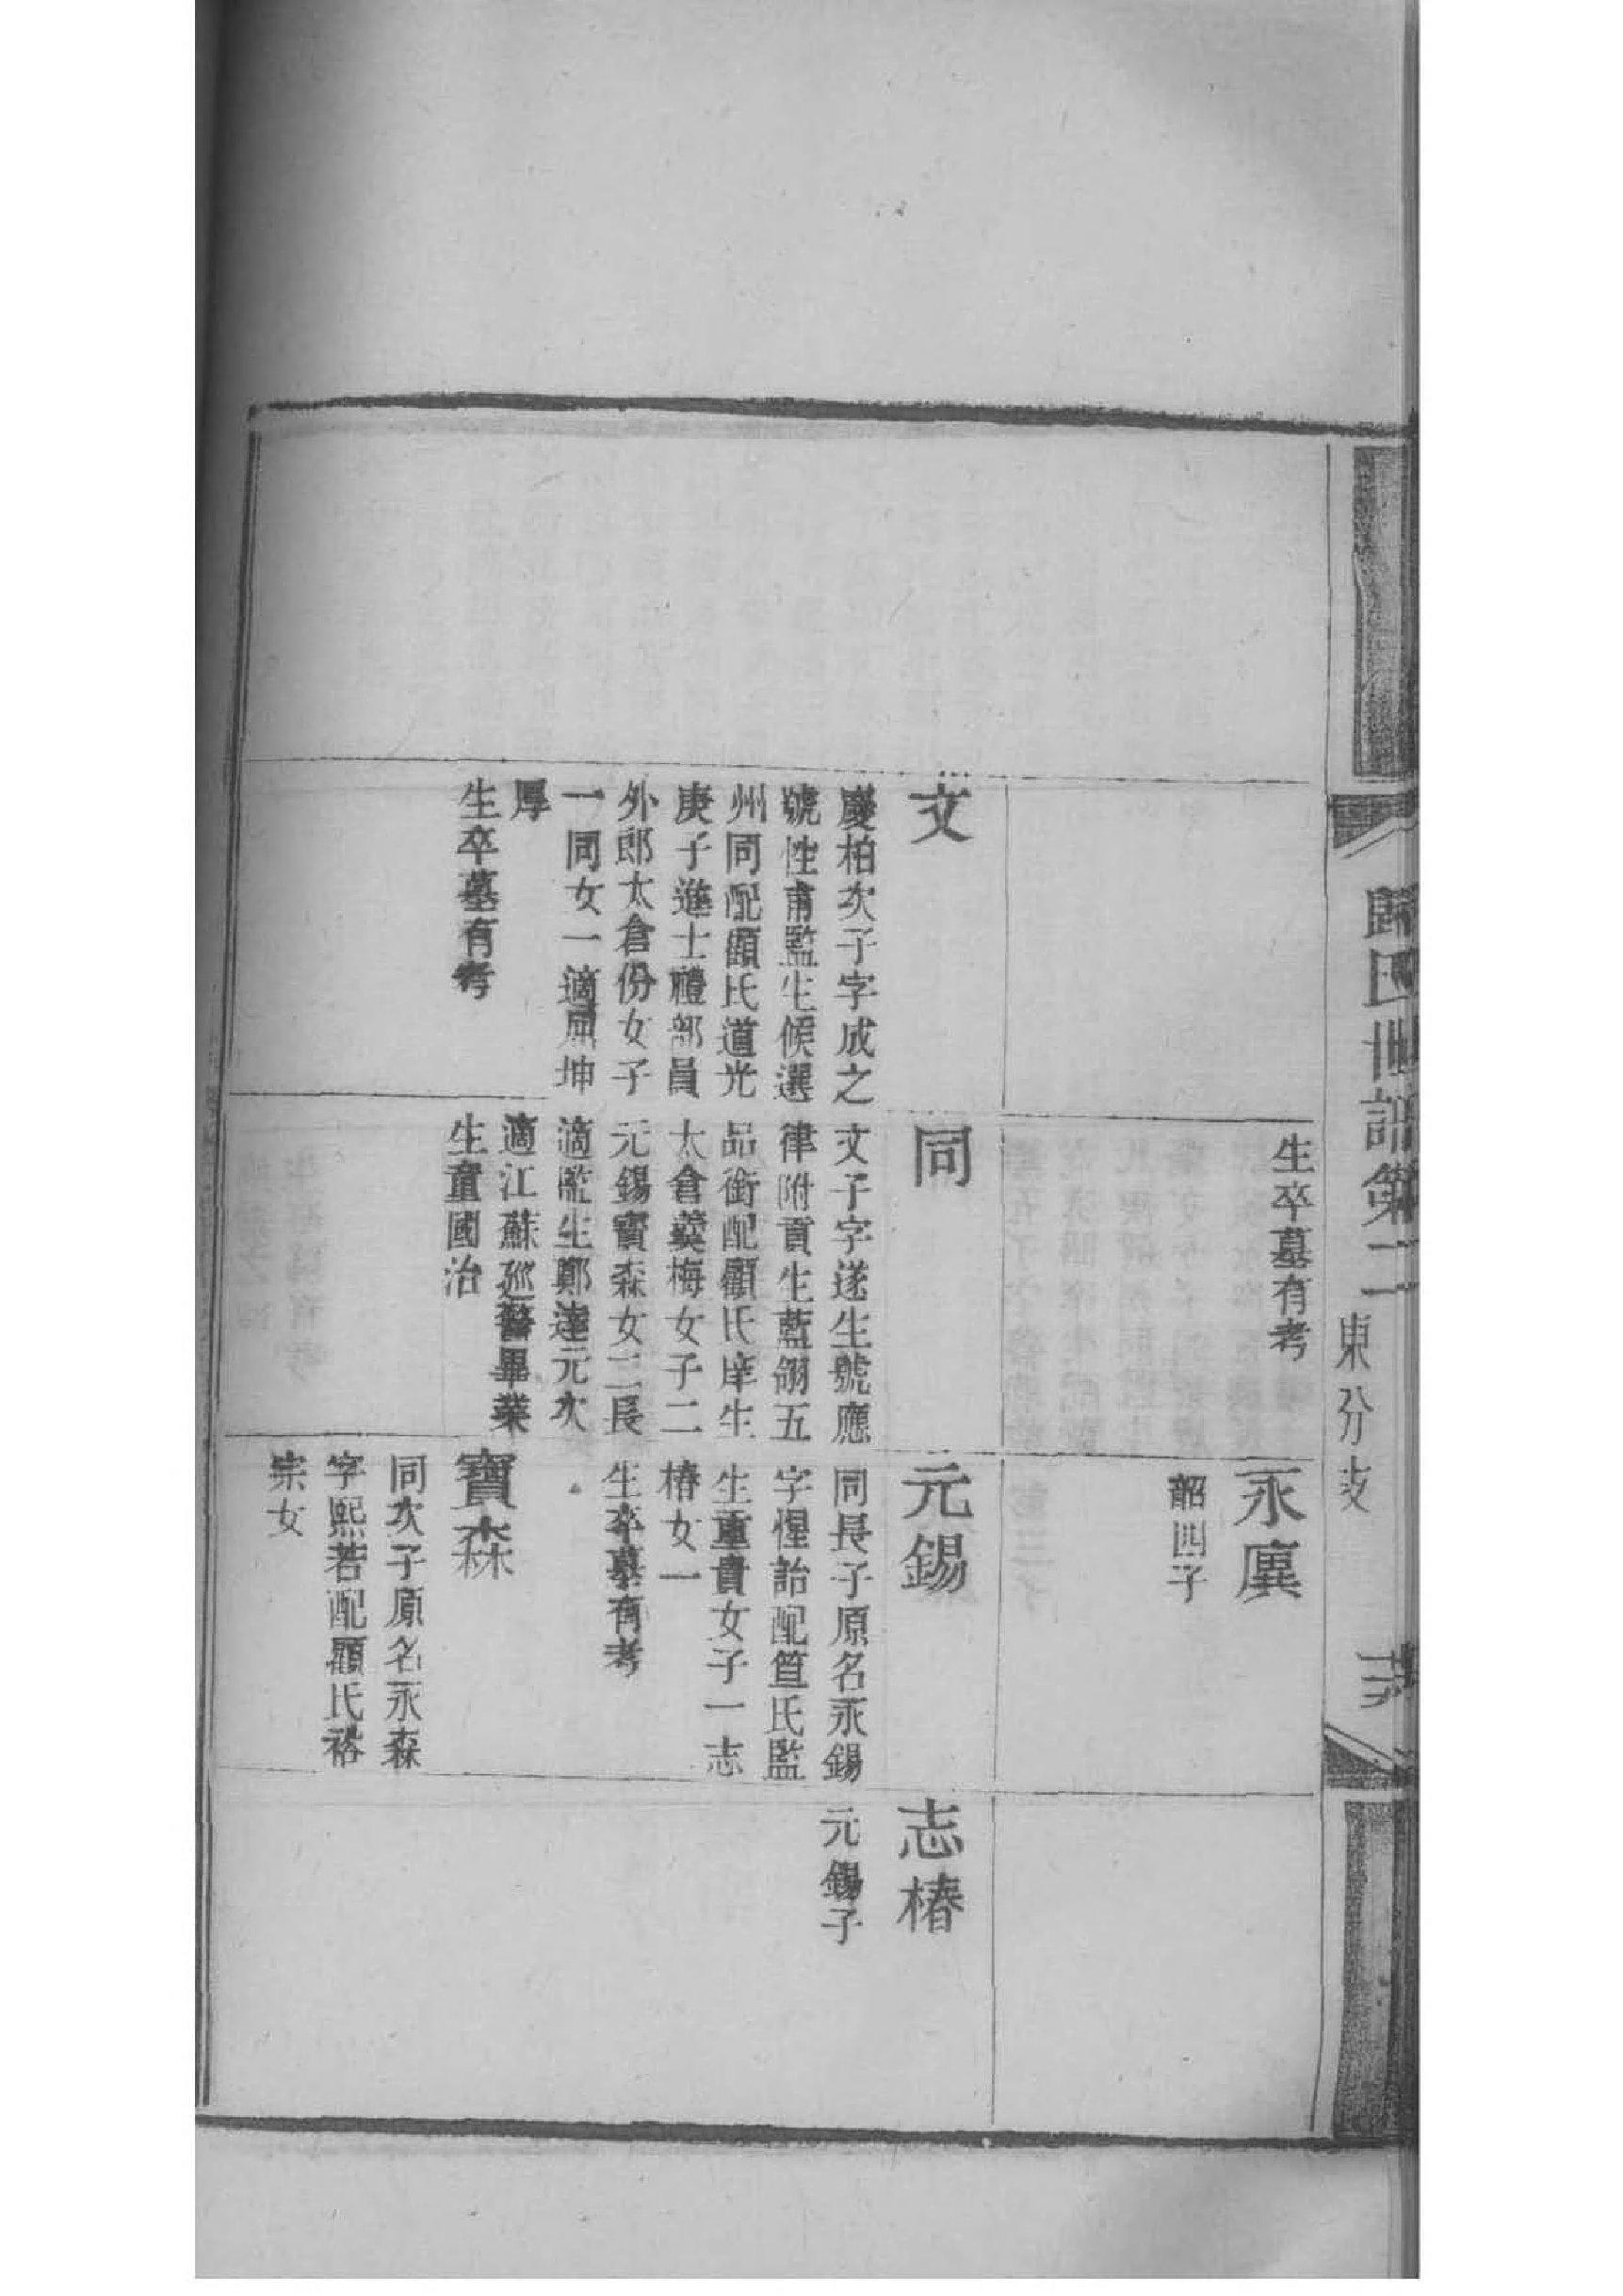 歸氏世譜第二 東分支
生卒墓有考
永廙
韶四子
文
慶柏次子字成之
號性甫監生候選
州同配顧氏道光
庚子進士禮部員
外郎太倉份女子
一同女一適屈坤
厚
生卒墓有考
同
文子字遂生號應
律附貢生藍翎五
品銜配顧氏庠生
太倉羹梅女子二
元錫寶森女二長
適監生鄭達元次
適江蘇巡警畢業
生童國治
元錫
同長子原名永錫
字惺詒配笪氏監
生重貴女子一志
椿女一
生卒墓有考
寶森
同次子原名永森
字熙若配顧氏裕
宗女
志椿
元錫子